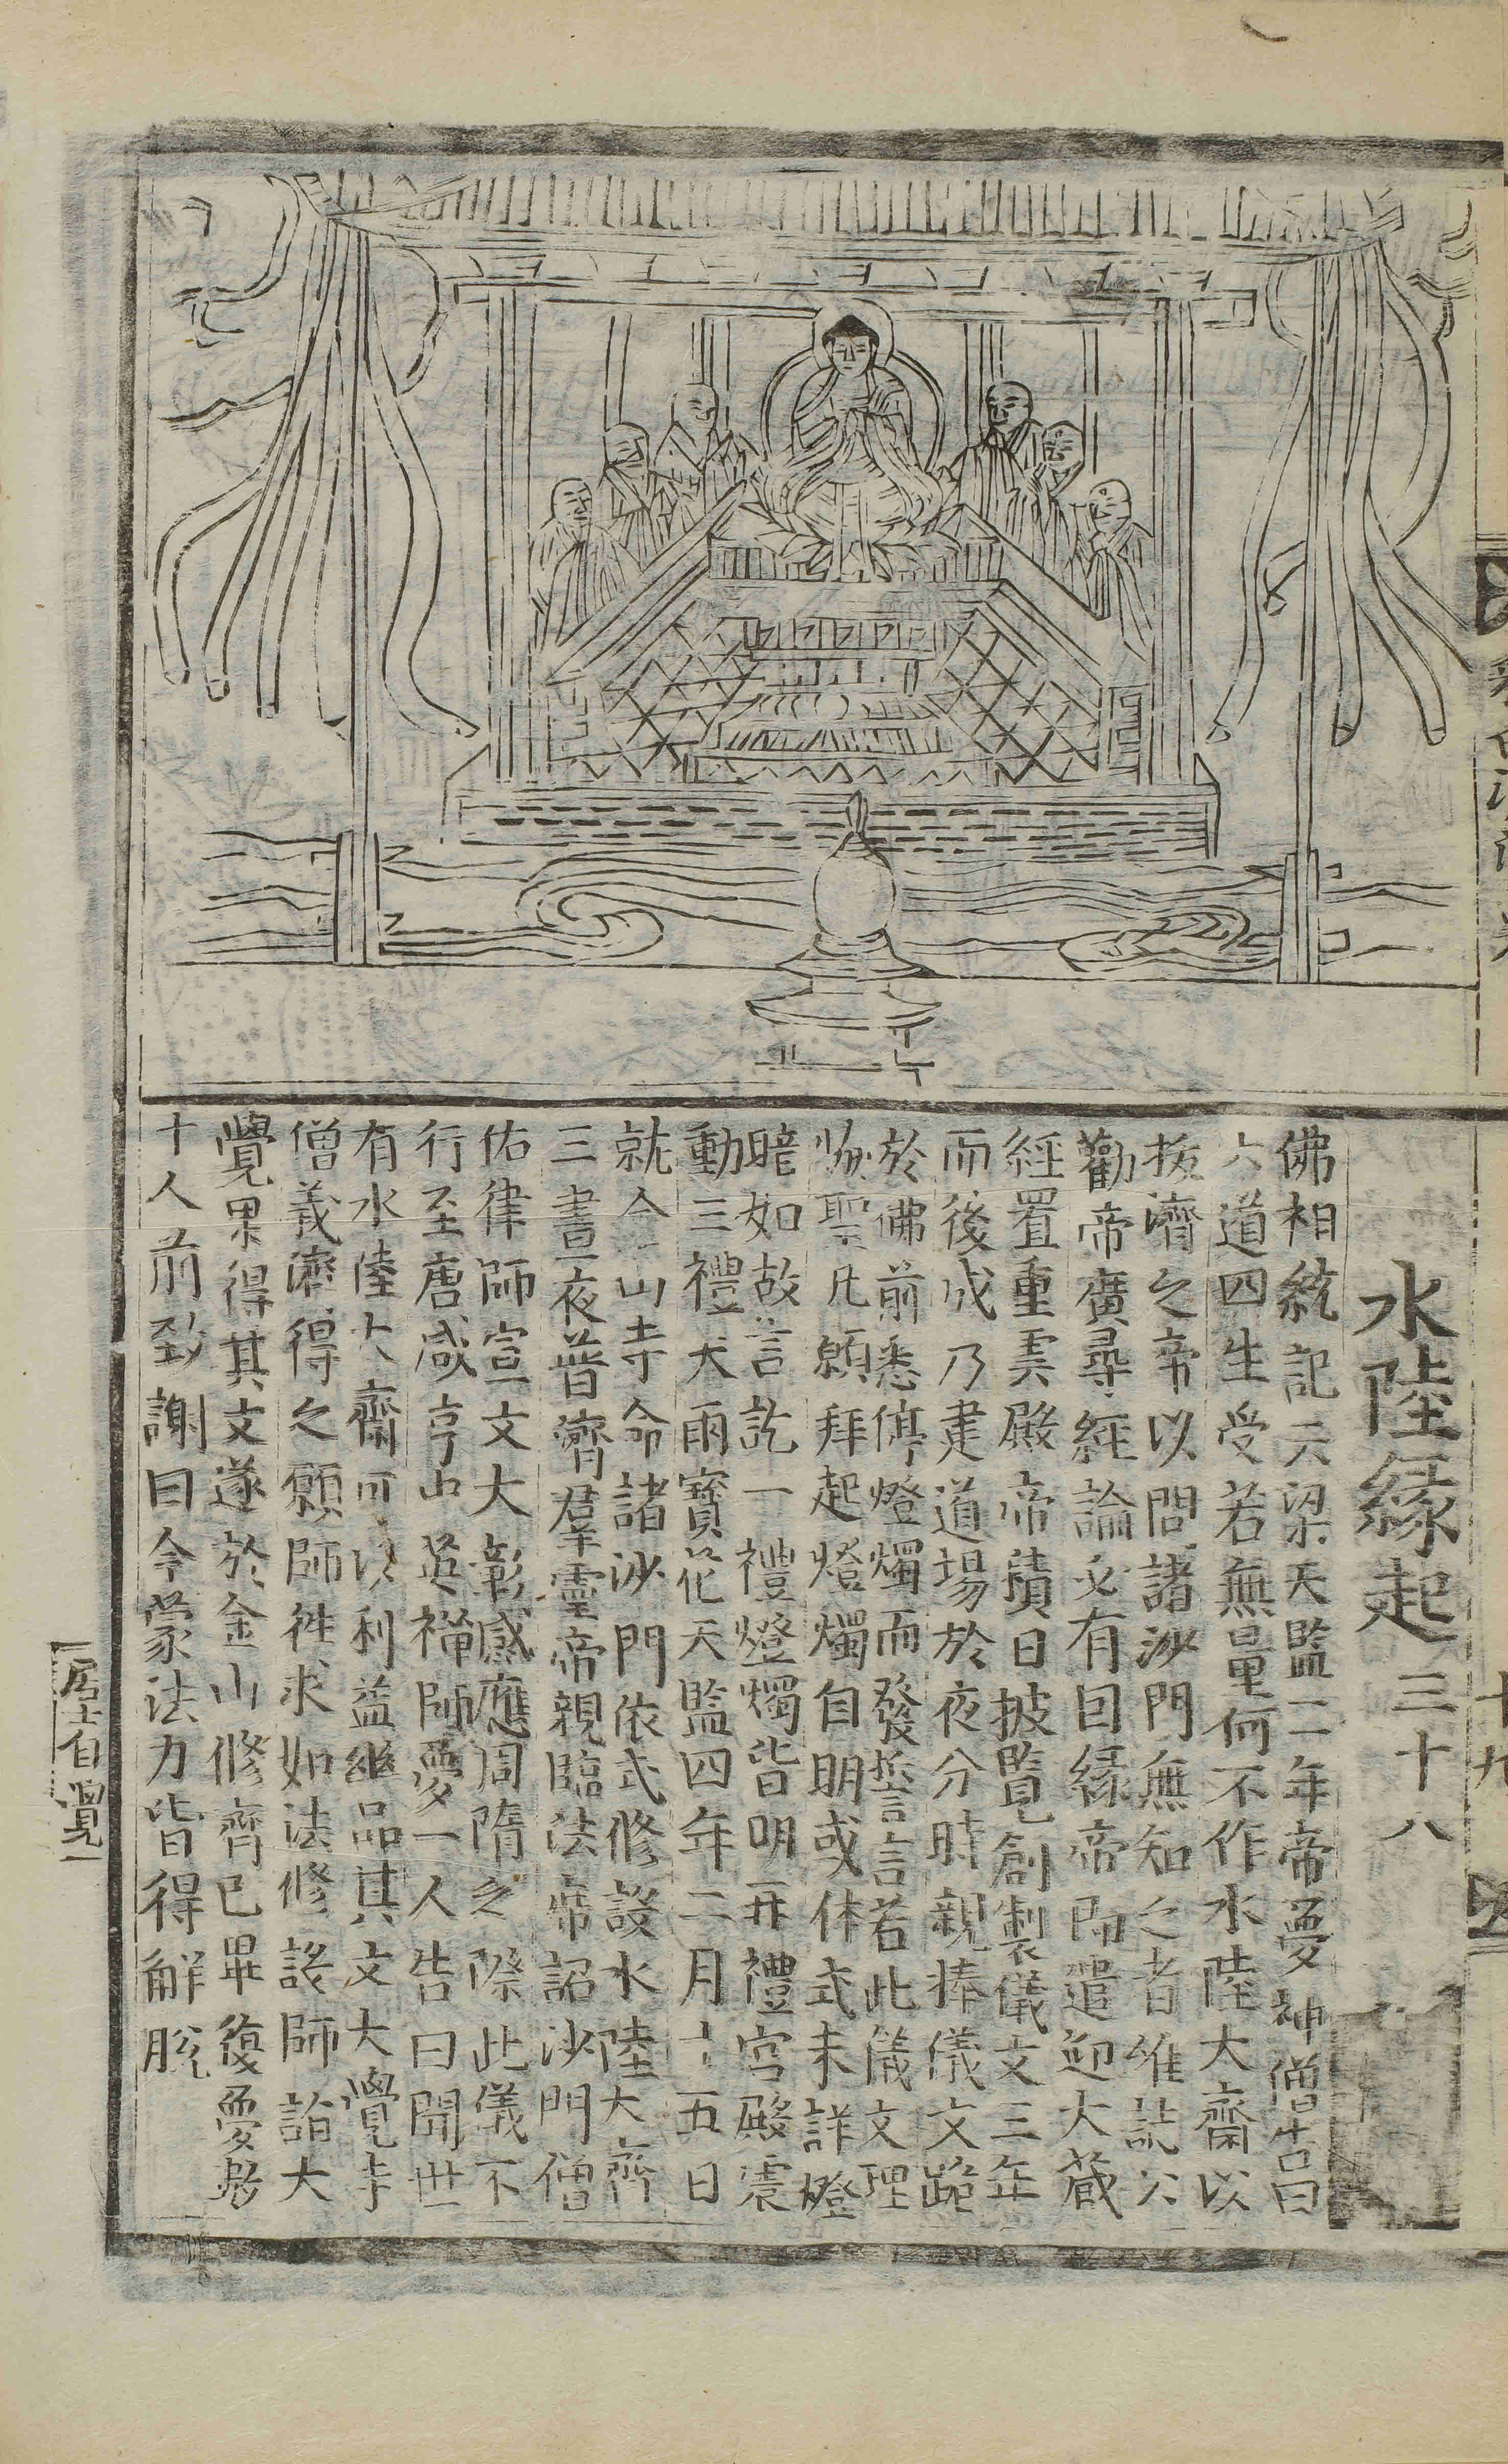 水陸縁起 三十八
佛祖統記云梁天監二年帝夢神僧告曰
六道四生受若無量何不作水陸大齋以
拔濟之帝以問諸沙門無知之者唯誌公
勸帝廣尋經論必有因縁帝即遣迎大藏
經置重雲殿帝積日披覧創製儀文三年
而後成乃建道場於夜分時親捧儀文跪
於佛前悉停燈燭而發誓言若此儀文理
恊聖凡願拜起燈燭自明或体式未詳燈
暗如故言訖一禮燈燭皆明再禮宮殿震
動三禮天雨寳花天監四年二月十五日
就金山寺命諸沙門依式修設水陸大齊
三晝夜普濟羣靈帝親臨法席詔沙門僧
佑律師宣文大彰感應周隋之際此儀不
行至唐咸亨中英禪師夢一人告曰聞世
有水陸大齋可以利益幽品其文大覺寺
僧義濟得之願師往求如法修設師詣大
覺果得其文遂於金山修齊已畢復夢數
十人前致謝曰今蒙法力皆得解脫
十九